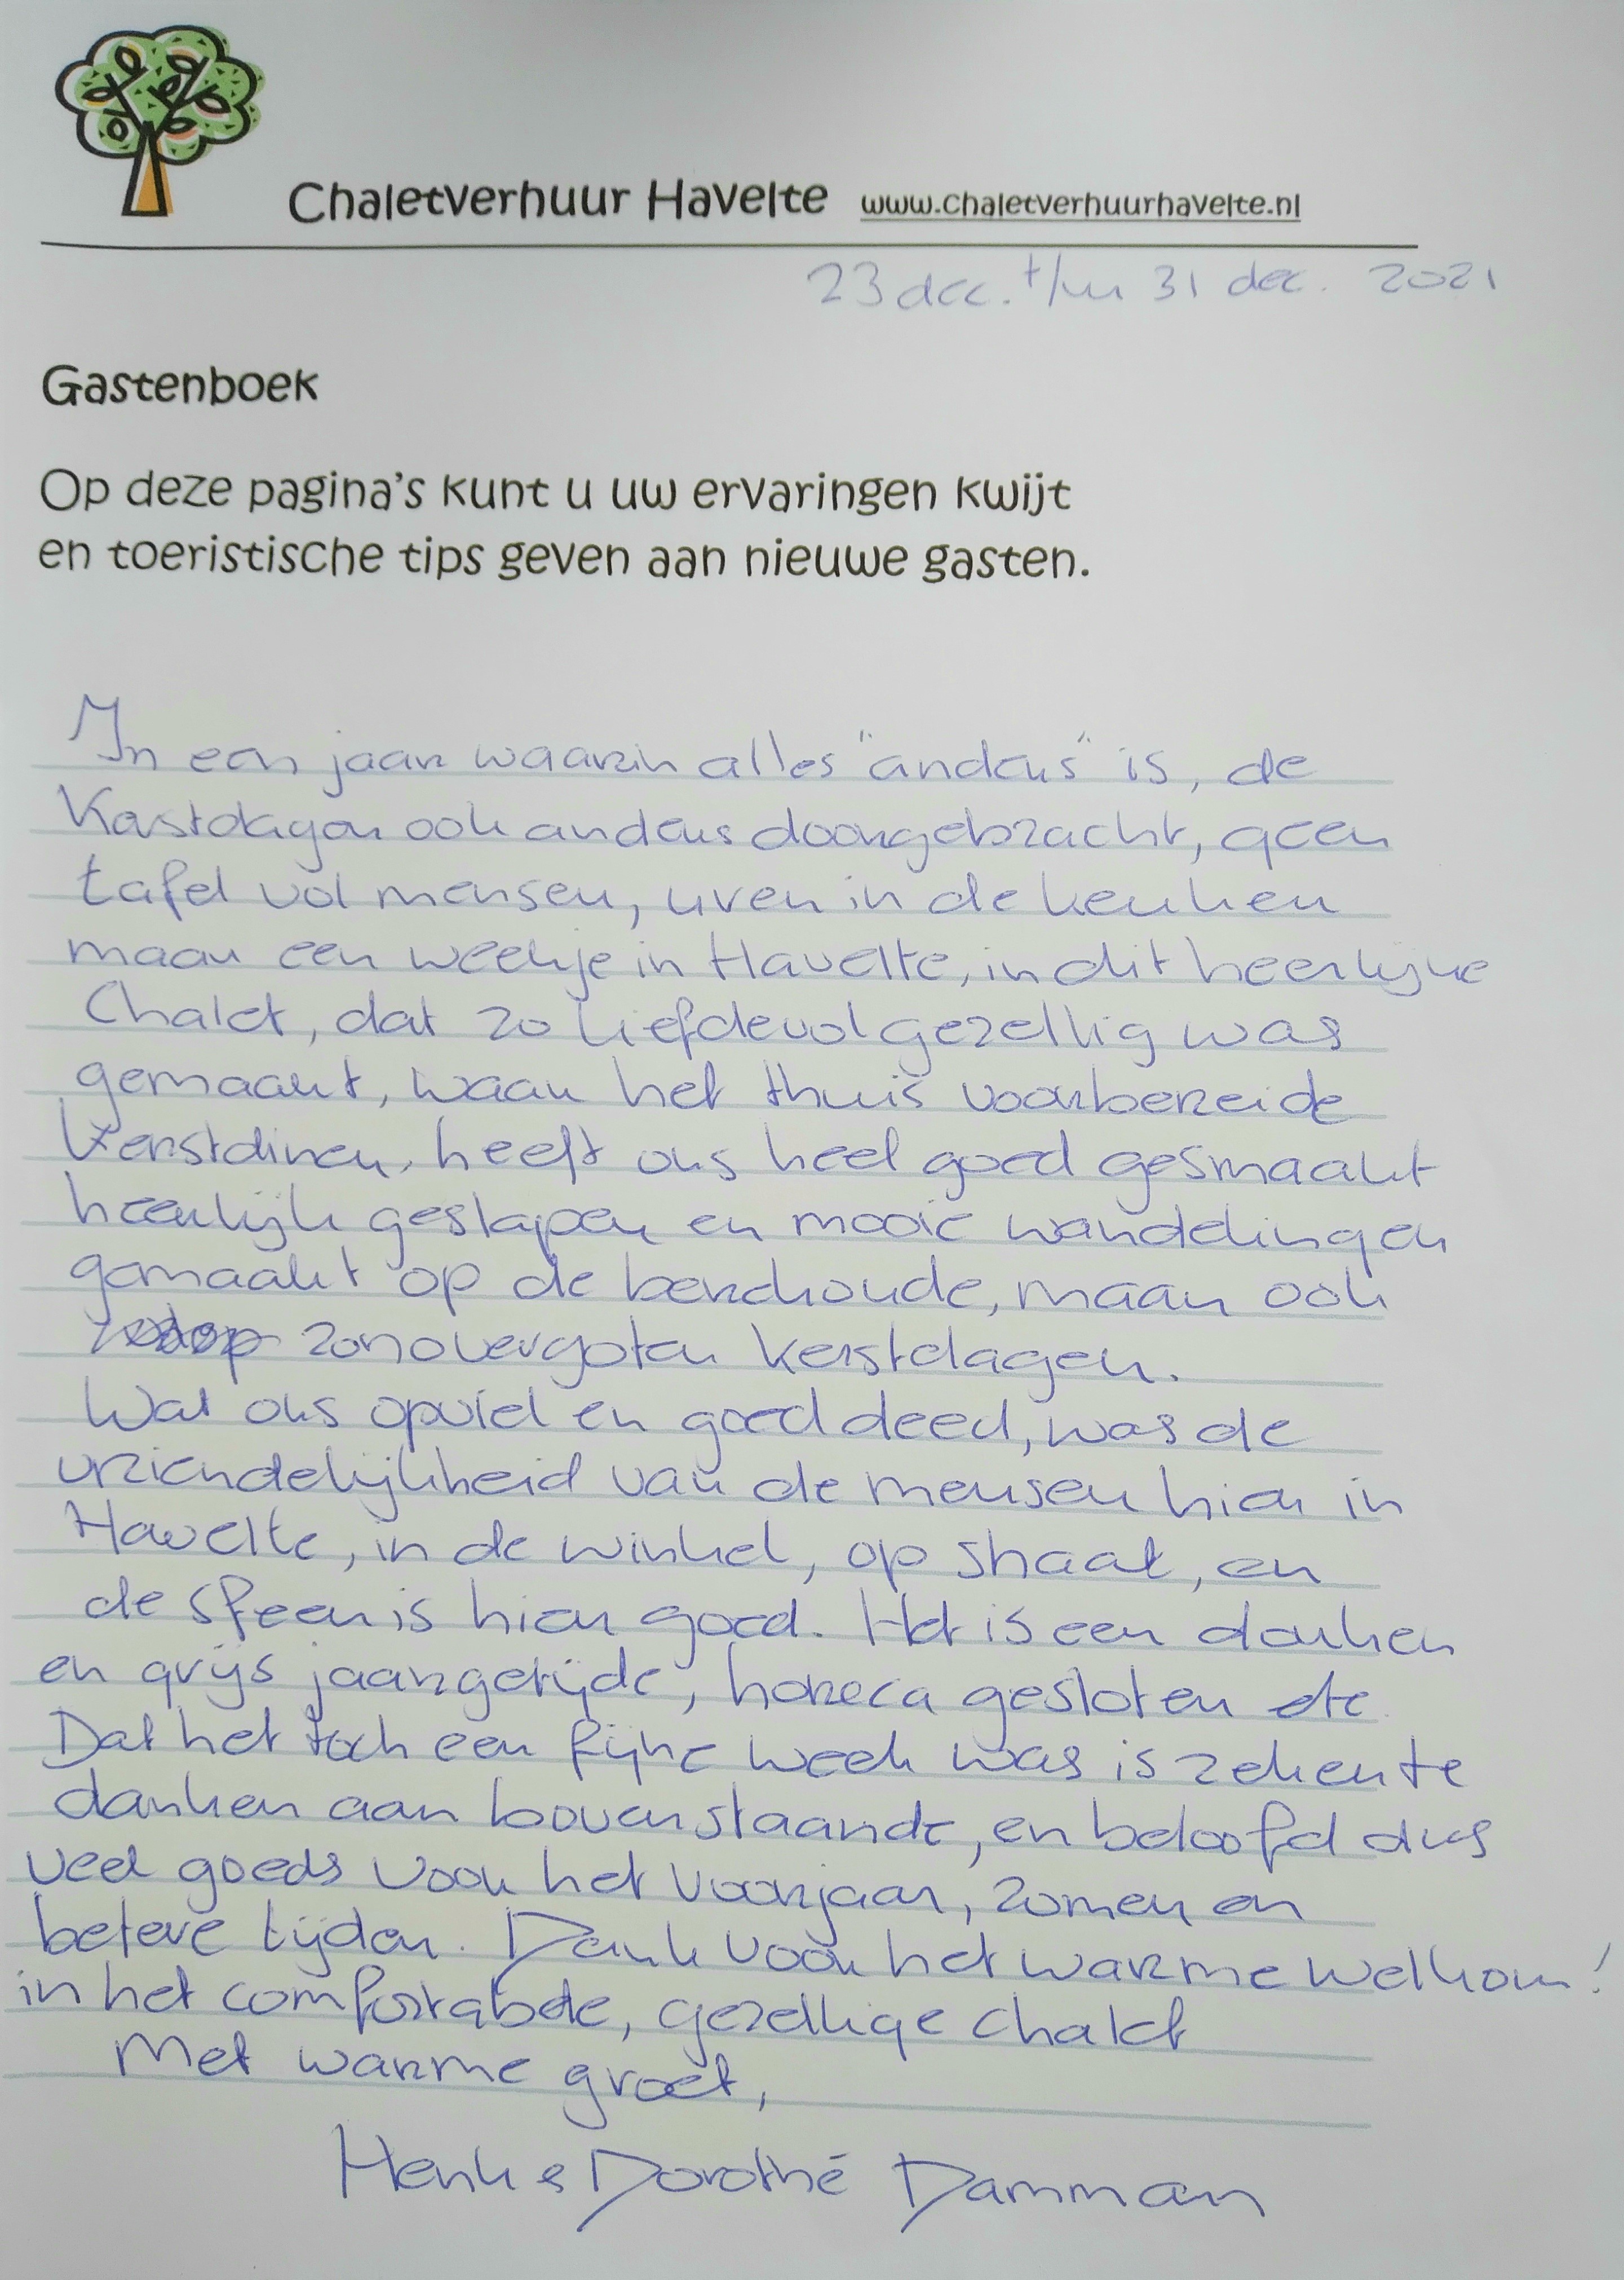 Chaletverhuur Havelte www.chaletverhuurhavelte.nl
23 dec. t/m 31 dec. 2021
Gastenboek
Op deze pagina's kunt u uw ervaringen kwijt
en toeristische tips geven aan nieuwe gasten.
In een jaar waarin alles "anders" is, de
Kerstdagen ook anders doorgebracht, geen
tafel vol mensen, uren in de keuken
maar een weekje in Havelte, in dit heerlijke
Chalet, dat zo liefdevol gezellig was
gemaakt, waar het thuis voorbereide
Kerstdiner, heeft ons heel goed gesmaakt
heerlijk geslapen en mooie wandelingen
gemaakt op de berckoude, maar ook
zonovergoten kerstdagen.
Wat ons opviel en goed deed, was de
vriendelijkheid van de mensen hier in
Havelte, in de winkel, op straat, en
de sfeer is hier goed. Het is een donker
en grijs jaargetijde, horeca gesloten etc.
Dat het toch een fijne week was is zeker te
danken aan bovenstaande, en beloofd dus
veel goeds voor het voorjaar, zomer en
betere tijden. Dank voor het warme welkom!
in het comfortabele, gezellige chalet
Met warme groet,
Henk & Dorothé Damman